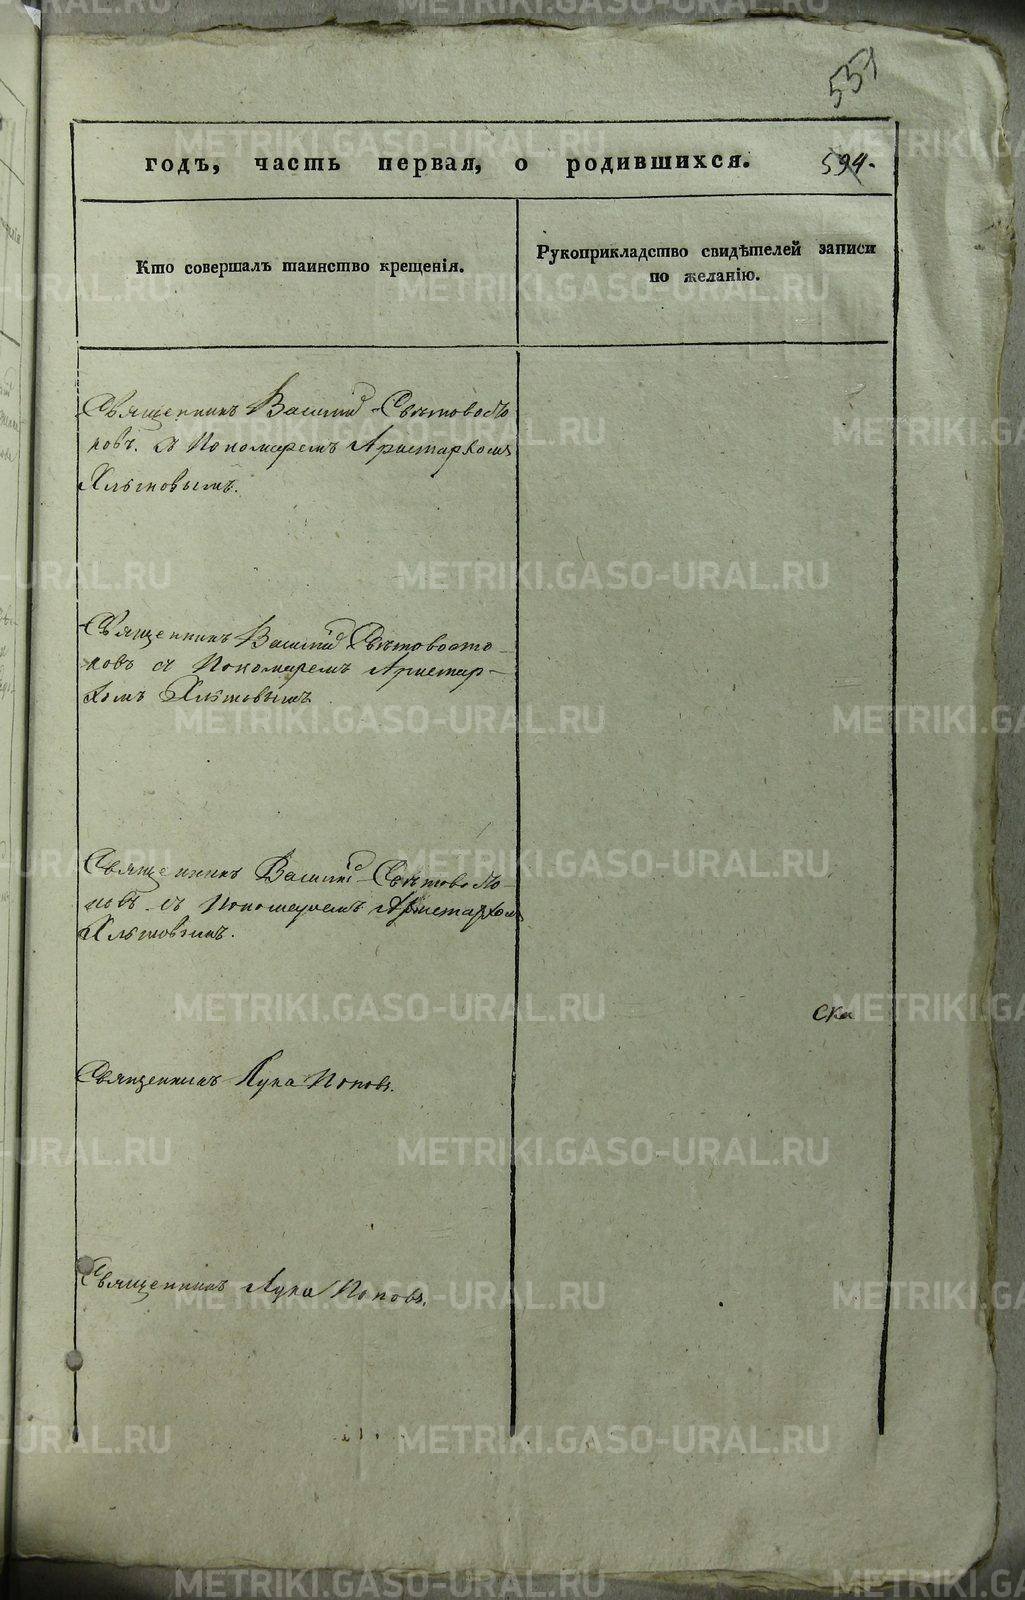 551
годъ, часть первая, о родившихся. 594.
Кто совершалъ таинство крещенія.
Рукоприкладство свидѣтелей записи
по желанію.
Священникъ Василій Свѣтовосто
ковъ. съ Пономаремъ Аристархомъ
Хлыновымъ.
Священникъ Василій Свѣтовосто-
ковъ съ Пономаремъ Аристар-
хомъ
Священникъ Василій Свѣтовосто-
ковъ съ Пономаремъ Аристархомъ
Ска
Священникъ Лука Поповъ.
Священникъ Лука Поповъ.
METRIKI.GASO-URAL.RU